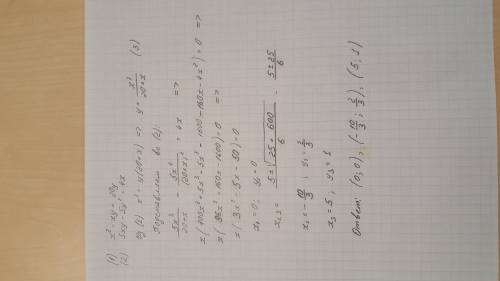 (1) x² - xy = 20y
(2) 5xy - 5y² = 4x
Из (1) x² = y(20+x) => y = x²/(20+x) (3)
Подставляем во (2):
5x³/(20+x) - 5x⁴/(20+x)² = 4x =>
x(100x² + 5x³ - 5x³ - 1600 - 160x - 4x²) = 0 =>
x(96x² - 160x - 1600) = 0 =>
x(3x² - 5x - 50) = 0
x₁ = 0; y₁ = 0
x₂,₃ = (5 ± √(25 + 600))/6 = (5 ± 25)/6
x₂ = -10/3; y₂ = 2/3
x₃ = 5; y₃ = 1
Ответ: (0; 0), (-10/3; 2/3), (5; 1)